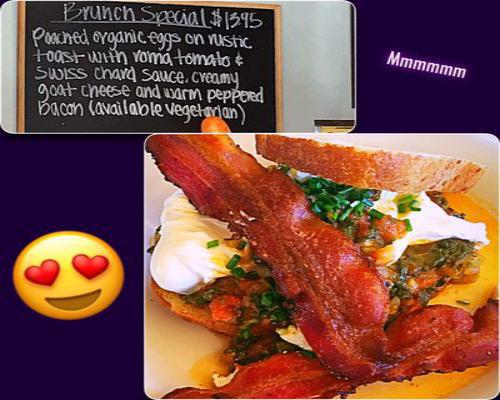 Brunch Special $1395
Poached organic eggs on rustic
toast with roma tomato &
Swiss chard sauce, creamy
goat cheese and warm peppered
Bacon (available vegetarian)
Mmmmmm